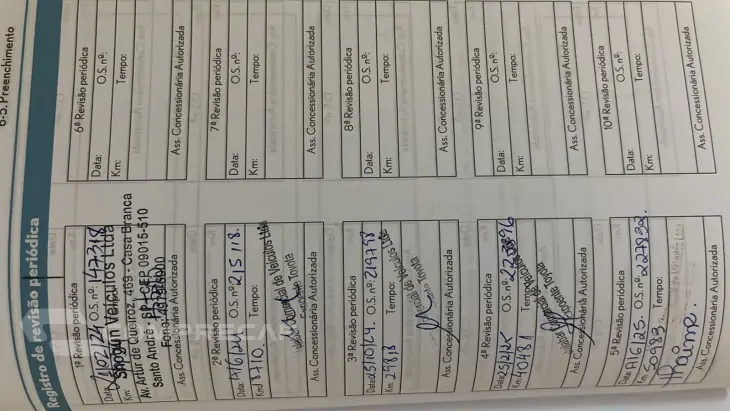 6-5. Preenchimento
Registro de revisão periódica
1ª Revisão periódica
Data: 1/02/24 O.S. nº: 47318
Km:
Shogun Veículos Ltda
Av. Artur de Queiroz, - Casa Branca
Santo André - SP - CEP 09015-510
Fone:
Ass. Concessionária Autorizada
2ª Revisão periódica
Data: O.S. nº: 215118.
Km: Tempo:
de Veículos Ltda
Toyota
Ass. Concessionária Autorizada
3ª Revisão periódica
Data: 25/10/24. O.S. nº: 219798
Km: 29818 Tempo:
de Veículos Ltda
Toyota
Ass. Concessionária Autorizada
4ª Revisão periódica
Data: O.S. nº:
Km: 40481 Tempo:
Toyota
Ass. Concessionária Autorizada
5ª Revisão periódica
Data: O.S. nº: 227832.
Km: 50983. Tempo:
Ass. Concessionária Autorizada
6ª Revisão periódica
Data: O.S. nº:
Km: Tempo:
Ass. Concessionária Autorizada
7ª Revisão periódica
Data: O.S. nº:
Km: Tempo:
Ass. Concessionária Autorizada
8ª Revisão periódica
Data: O.S. nº:
Km: Tempo:
Ass. Concessionária Autorizada
9ª Revisão periódica
Data: O.S. nº:
Km: Tempo:
Ass. Concessionária Autorizada
10ª Revisão periódica
Data: O.S. nº:
Km: Tempo:
Ass. Concessionária Autorizada